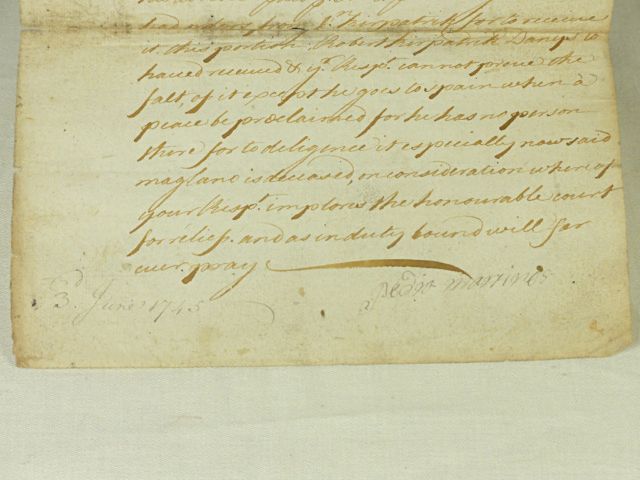 from Kirpatrik for to receive
it this portion Robert Kirpatrick Denys to
haved received & yr. Respt. cannot prove the
falt, of it except he goes to spain when a
peace be proclaimed for he has no person
there for to deligence it especially now said
magland is deceased, on consideration where of
your Respt. implores the honourable court
for relief. and as in duty bound will for
ever. pray
3d. June 1745
Pedro martines